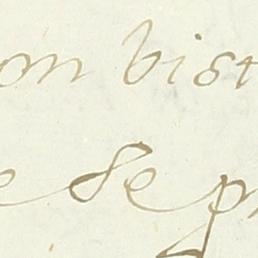 on bist
e de p